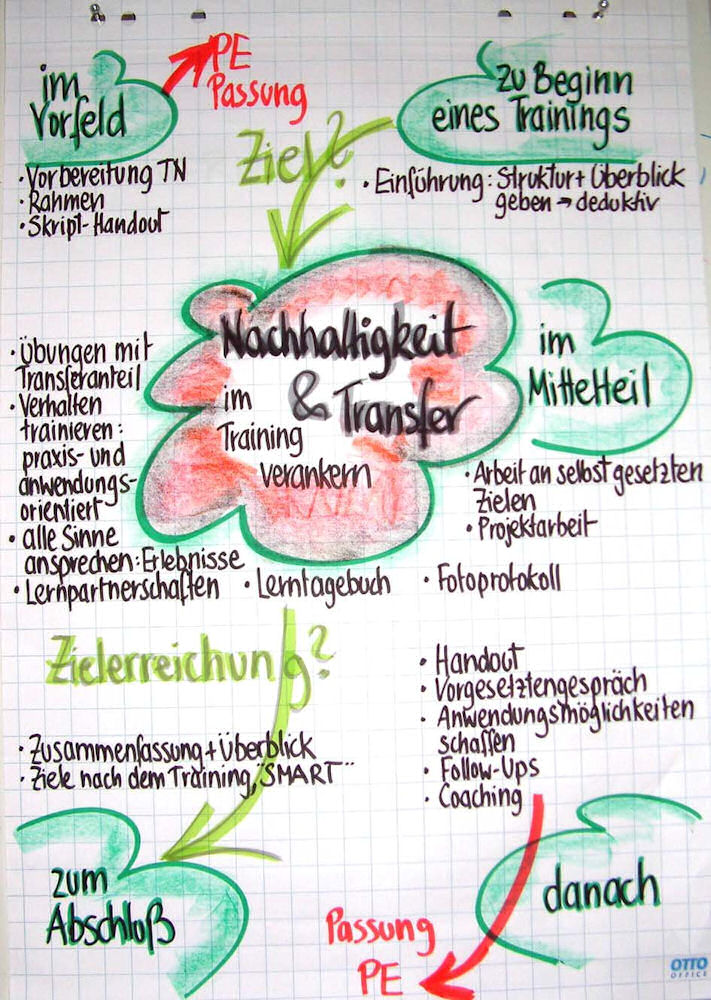 im
Vorfeld
PE
Passung
zu Beginn
eines Trainings
Ziel?
· Vorbereitung TN
· Rahmen
· Skript-Handout
· Einführung: Struktur + Überblick
geben → deduktiv
Nachhaltigkeit
& Transfer
im
Training
verankern
im
Mittelteil
· Übungen mit
Transferanteil
· Verhalten
trainieren:
praxis- und
anwendungs-
orientiert
· alle Sinne
ansprechen: Erlebnisse
· Lernpartnerschaften
· Lerntagebuch
· Arbeit an selbst gesetzten
Zielen
· Projektarbeit
· Fotoprotokoll
Zielerreichung?
· Zusammenfassung + Überblick
· Ziele nach dem Training, "SMART"
zum
Abschluß
· Handout
· Vorgesetztengespräch
· Anwendungsmöglichkeiten
schaffen
· Follow-Ups
· Coaching
danach
Passung
PE
OTTO
OFFICE